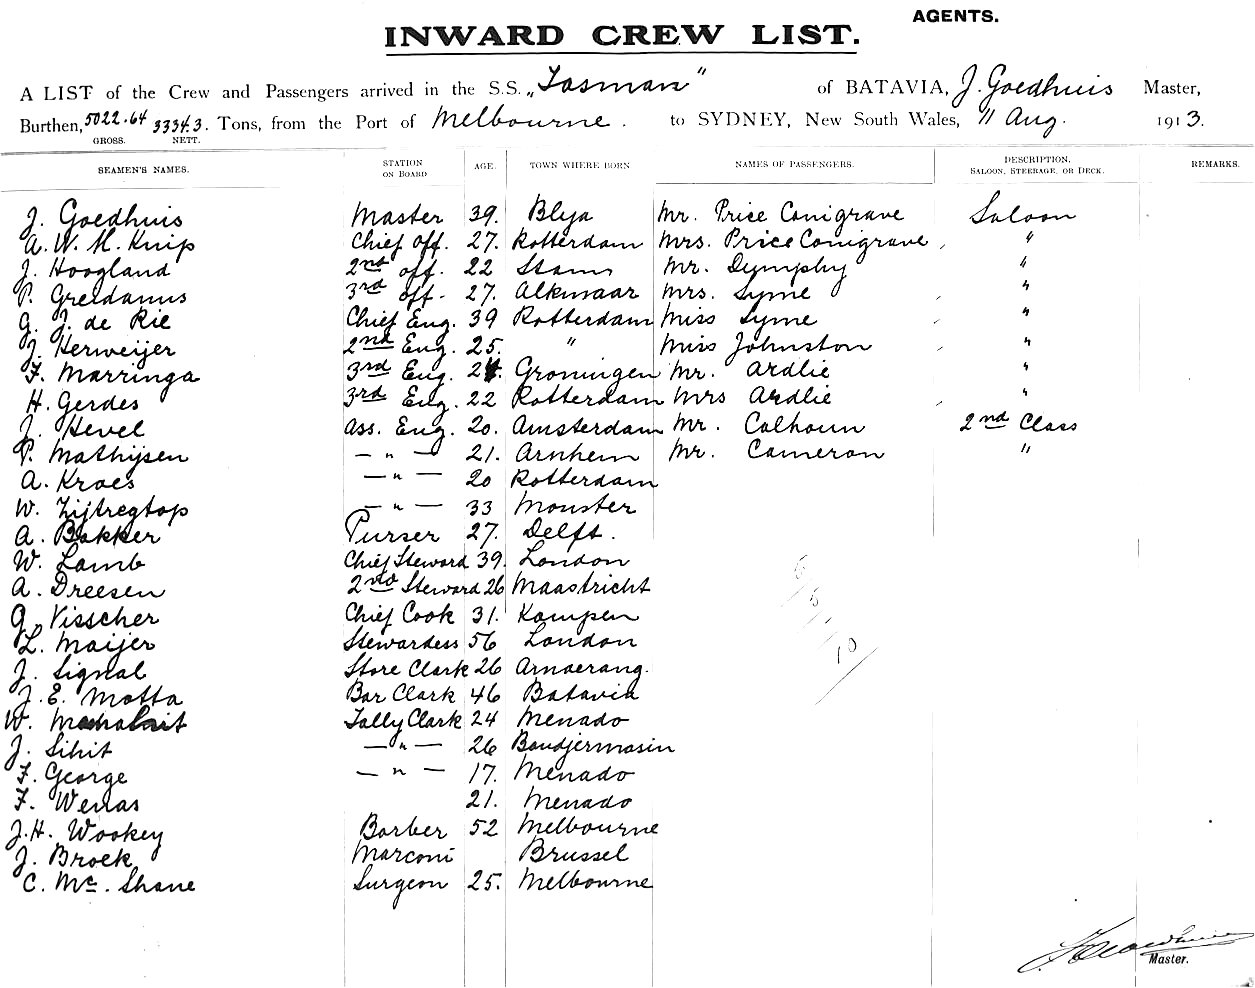 AGENTS.
INWARD CREW LIST.
A LIST of the Crew and Passengers arrived in the S.S. „Tasman" of BATAVIA, J. Goedhuis Master,
Burthen, 5022.64 3334.3. Tons, from the Port of Melbourne. to SYDNEY, New South Wales, 11 Aug. 1913.
GROSS. NETT.
SEAMEN'S NAMES. STATION ON BOARD AGE. TOWN WHERE BORN NAMES OF PASSENGERS. DESCRIPTION. SALOON, STEERAGE, OR DECK. REMARKS.
J. Goedhuis Master 39. Blya Mr. Price Conigrave Saloon
A. W. M. Knip Chief Off. 27. Rotterdam Mrs. Price Conigrave "
J. Hoogland 2nd Off. 22 Stam Mr. Dymphy "
P. Greidanus 3rd Off. 27. Alkmaar Mrs. Syme "
G. J. de Rie Chief Eng. 39 Rotterdam Miss Syme "
J. Herweijer 2nd Eng. 25. " Miss Johnston "
F. Marringa 3rd Eng. 24. Groningen Mr. Ardlie "
H. Gerdes 3rd Eng. 22 Rotterdam Mrs Ardlie "
J. Hevel Ass. Eng. 20. Amsterdam Mr. Calhoun 2nd Class
P. Mathijsen — " — 21. Arnhem Mr. Cameron "
A. Kroes — " — 20 Rotterdam
W. Zijtregtop — " — 33 Monster
A. Bakker Purser 27. Delft.
W. Lamb Chief Steward 39. London
A. Dreesen 2nd Steward 26 Maastricht
G. Visscher Chief Cook 31. Kampen
L. Maijer Stewardess 56 London
J. Signal Store Clark 26 Arnaerang.
J. E. Motta Bar Clark 46 Batavia
W. Tally Clark 24 Menado
J. Sihit — " — 26 Bandjermasin
F. George — " — 17. Menado
F. Wenas 21. Menado
J. H. Wookey Barber 52 Melbourne
J. Broek Marconi Brussel
C. Mc. Shane Surgeon 25. Melbourne
J. Goedhuis
Master.